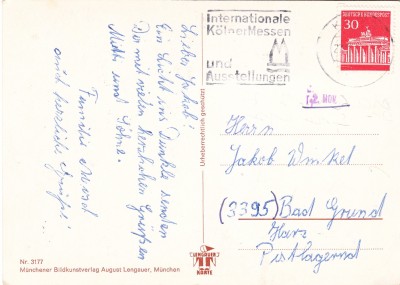 Internationale
Kölner Messen
und
Ausstellungen
DEUTSCHE BUNDESPOST
30
Lieber Jakob!
Ein Licht ins Dunkle senden
Da mit vielen herzlichen Grüßen
Mutti und Söhne.
Familie
auch herzliche Grüße!
Urheberrechtlich geschützt
Herrn
Jakob Winkel
(3395) Bad Grund
Harz
Postlagernd
Nr. 3177
Münchener Bildkunstverlag August Lengauer, München
LENGAUER
KARTE